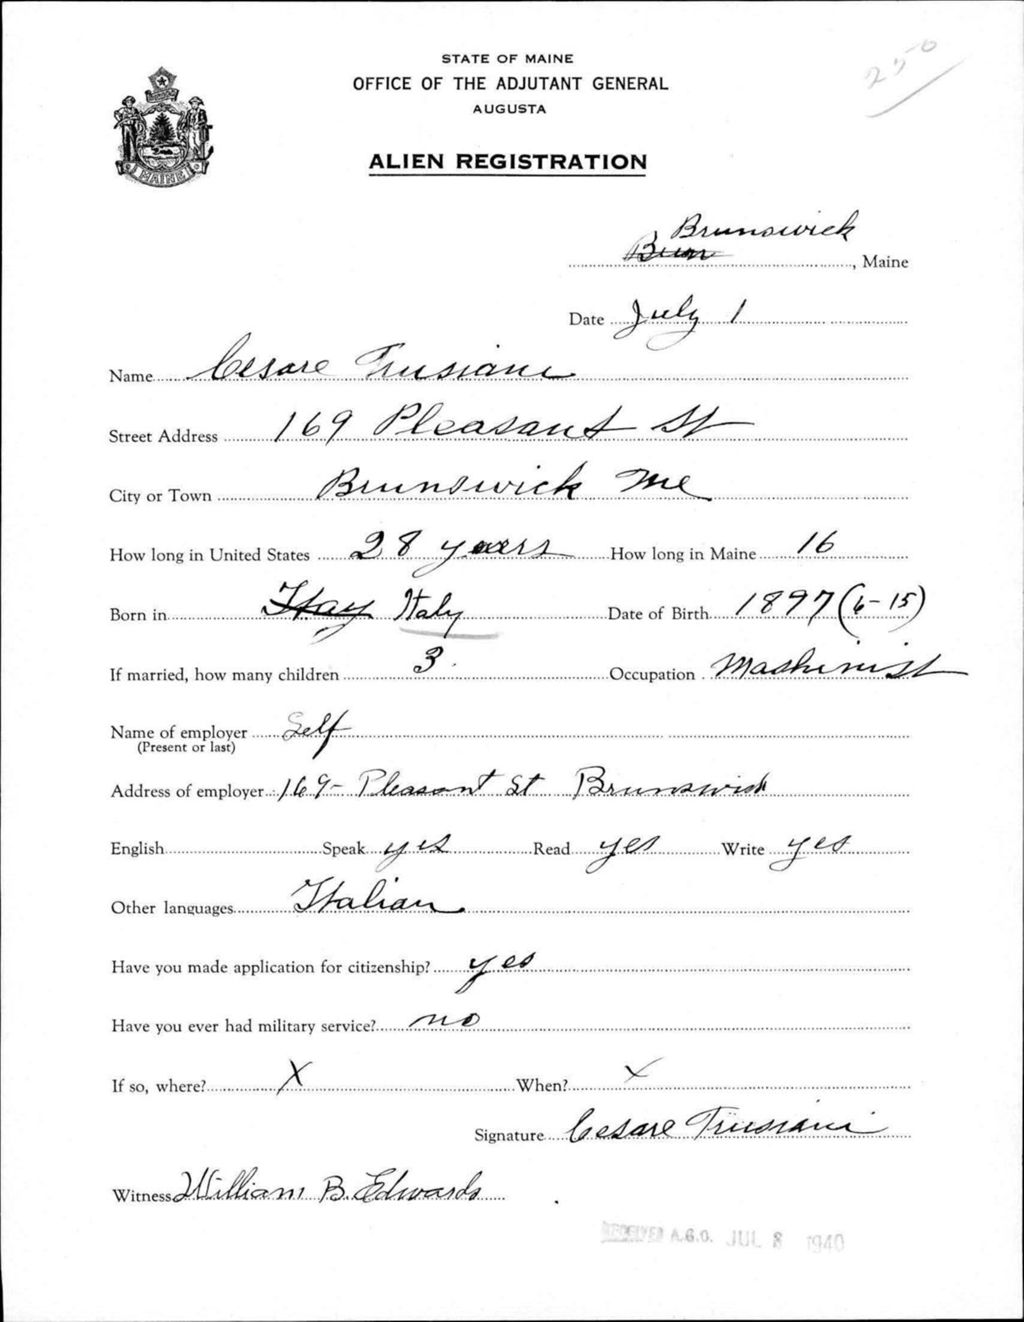 250
STATE OF MAINE
OFFICE OF THE ADJUTANT GENERAL
AUGUSTA
MAINE
ALIEN REGISTRATION
Brunswick
Brun, Maine
Date July 1
Name Cesare Trusiani
Street Address 169 Pleasant St
City or Town Brunswick Me
How long in United States 28 years How long in Maine 16
Born in Itay Italy Date of Birth 1897 (6-15)
If married, how many children 3 Occupation Mashinist
Name of employer Self
(Present or last)
Address of employer 169- Pleasant St Brunswick
English Speak yes Read yes Write yes
Other languages Italian
Have you made application for citizenship? yes
Have you ever had military service? no
If so, where? X When? X
Signature Cesare Trusiani
Witness William B. Edwards
RECEIVED A.G.O. JUL 8 1940